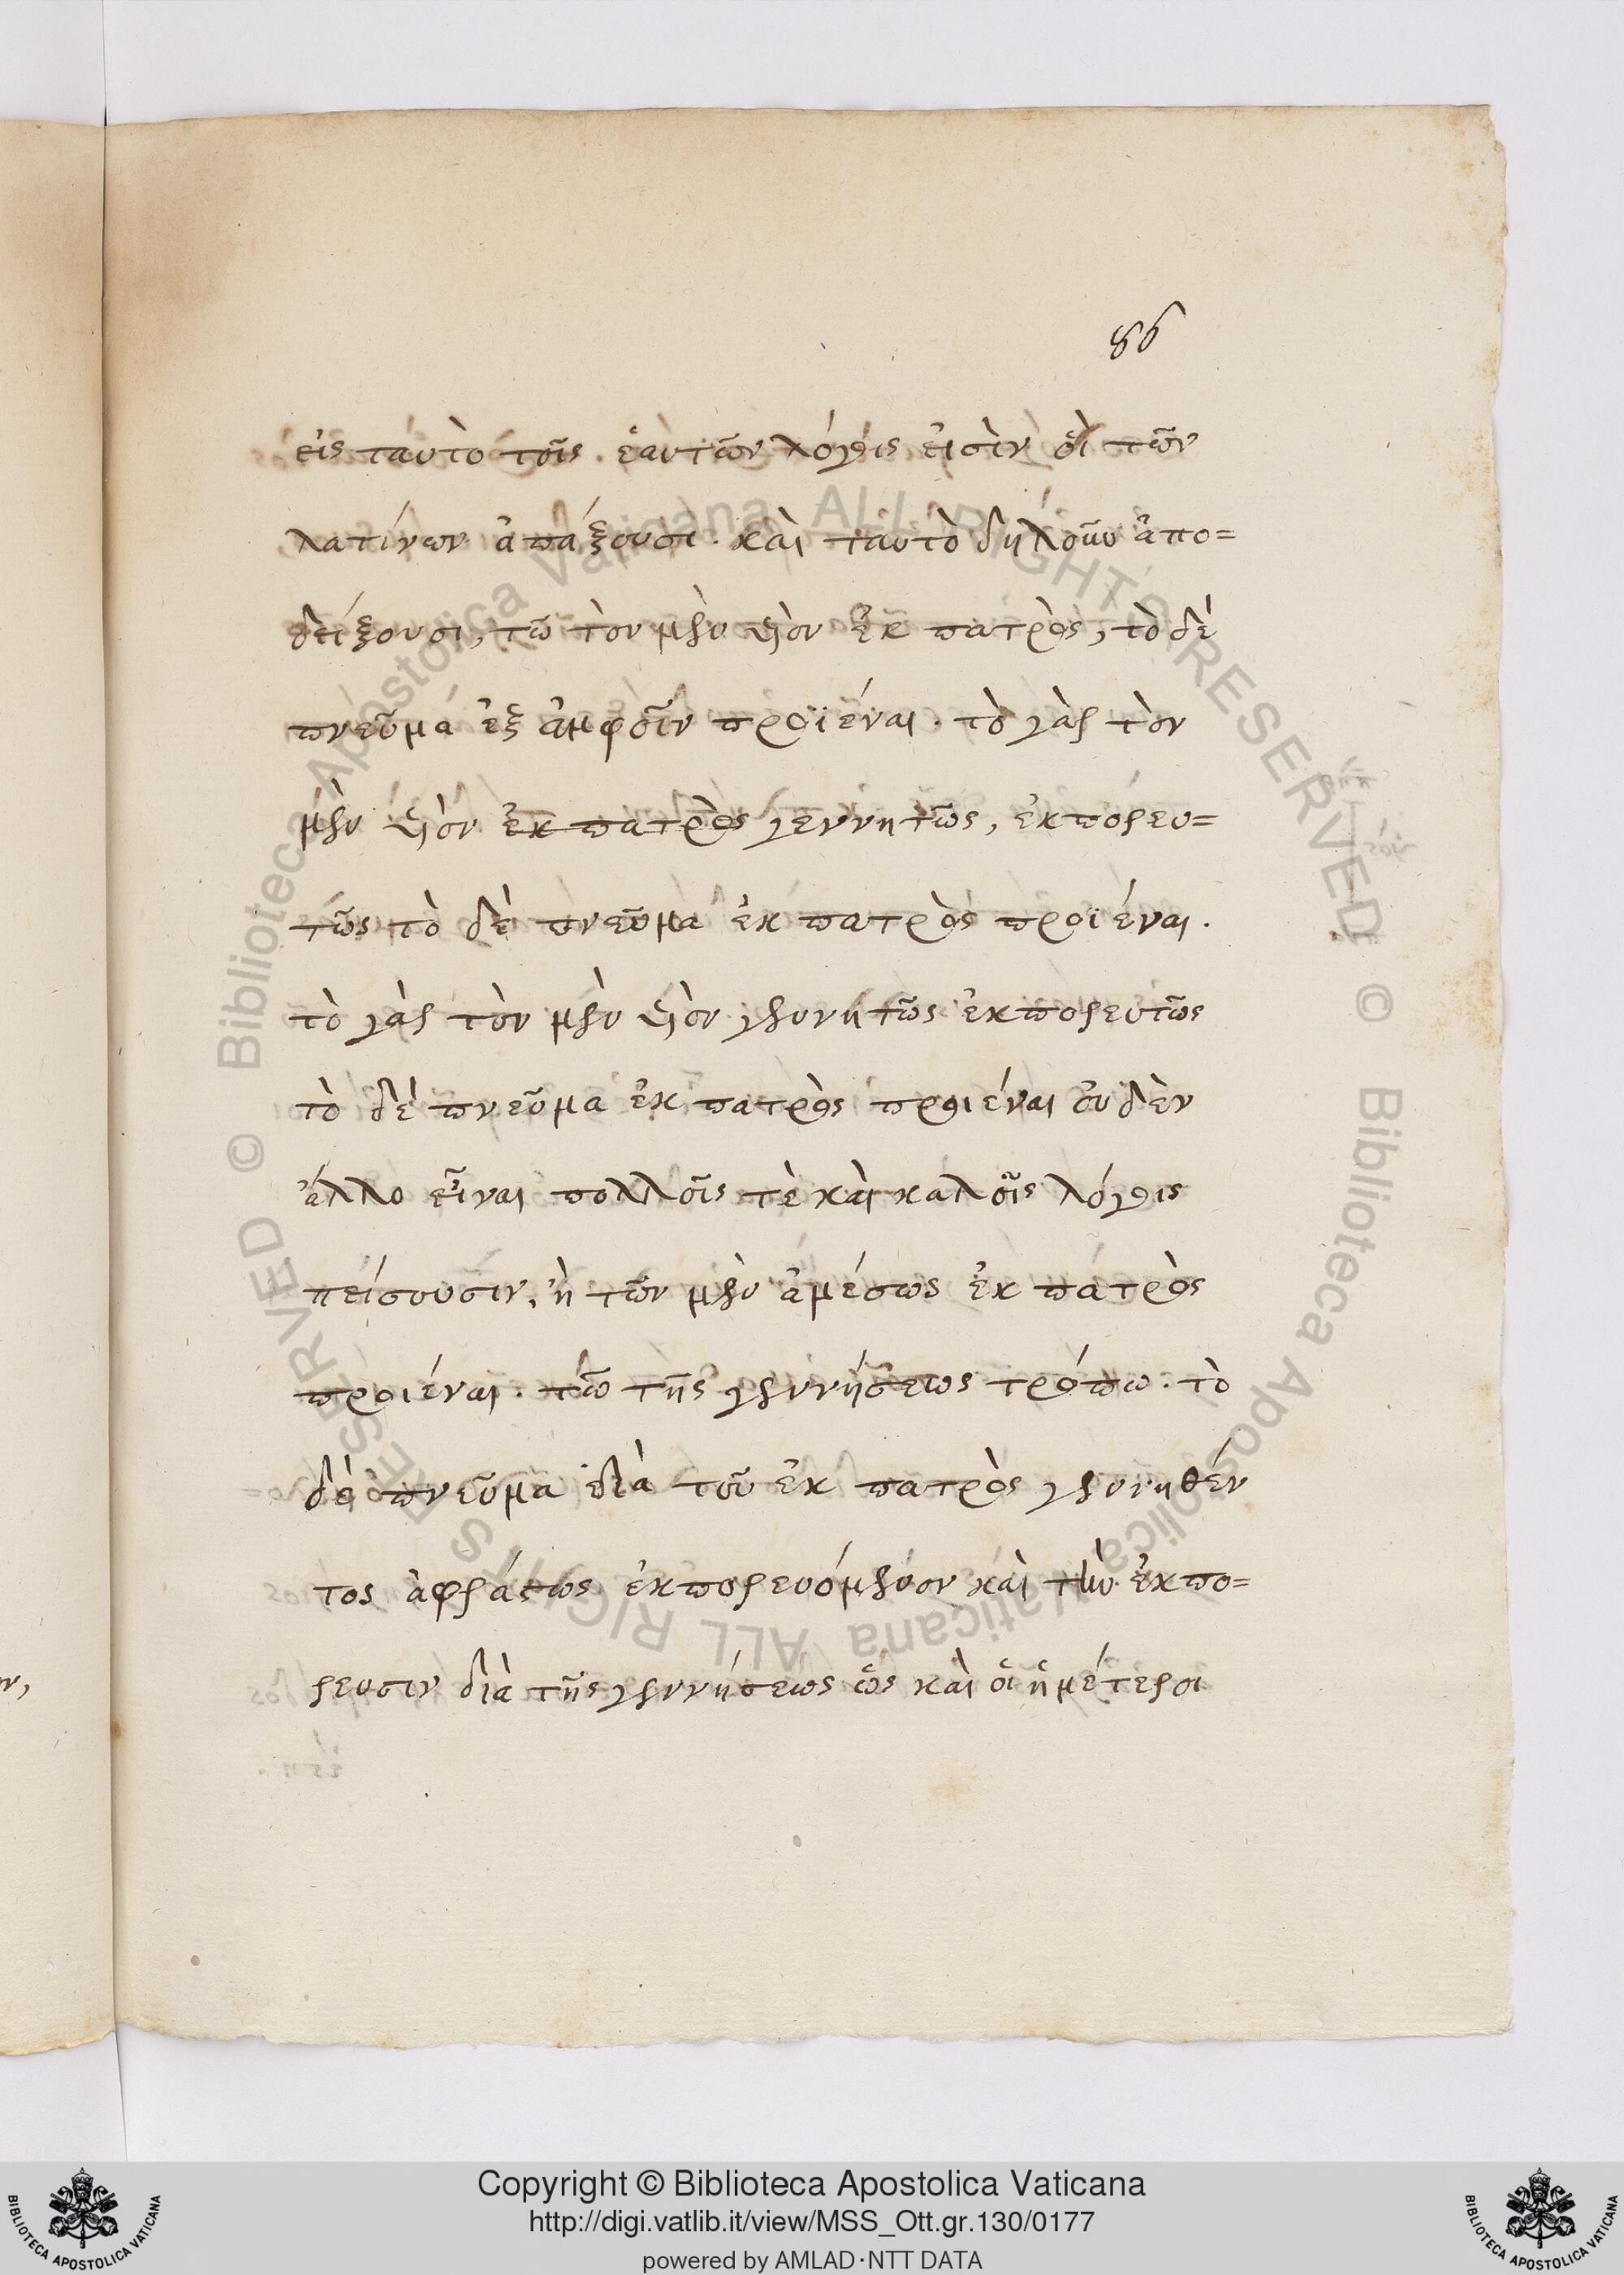 86
εἰς ταυτὸ τοῖς ἑαυτῶν λόγοις εἰσὶν οἱ τῶν
λατίνων ἀπάξουσι. καὶ ταυτὸ δηλοῦν ἀπο=
δείξουσι, τῶ τὸν μὲν υἱὸν ἐκ πατρὸς, τὸ δὲ
πνεῦμα ἐξ ἀμφοῖν προϊέναι. τὸ γὰρ τὸν
μὲν υἱὸν ἐκ πατρὸς γεννητῶς, ἐκπορευ=
τῶς τὸ δὲ πνεῦμα ἐκ πατρὸς προϊέναι.
τὸ γὰρ τὸν μὲν υἱὸν γεννητῶς ἐκπορευτῶς
τὸ δὲ πνεῦμα ἐκ πατρὸς προιέναι οὐδὲν
ἄλλο εἶναι πολλοῖς τὲ καὶ καλοῖς λόγοις
πείσουσιν, ἢ τῶν μὲν ἀμέσως ἐκ πατρὸς
προιέναι. τῶ τῆς γεννήσεως τρόπω. τὸ
δὲ πνεῦμα διὰ τοῦ ἐκ πατρὸς γεννηθέν
τος ἀφράστως ἐκπορευόμενον καὶ τὴν ἐκπο=
ρευσιν διὰ τῆς γεννήσεως ὥς καὶ οἱ ἡμέτεροι
ν,
Copyright © Biblioteca Apostolica Vaticana
http://digi.vatlib.it/view/MSS_Ott.gr.130/0177
powered by AMLAD·NTT DATA
BIBLIOTECA APOSTOLICA VATICANA
BIBLIOTECA APOSTOLICA VATICANA
© Biblioteca Apostolica Vaticana ALL RIGHTS RESERVED © Biblioteca Apostolica Vaticana ALL RIGHTS RESERVED